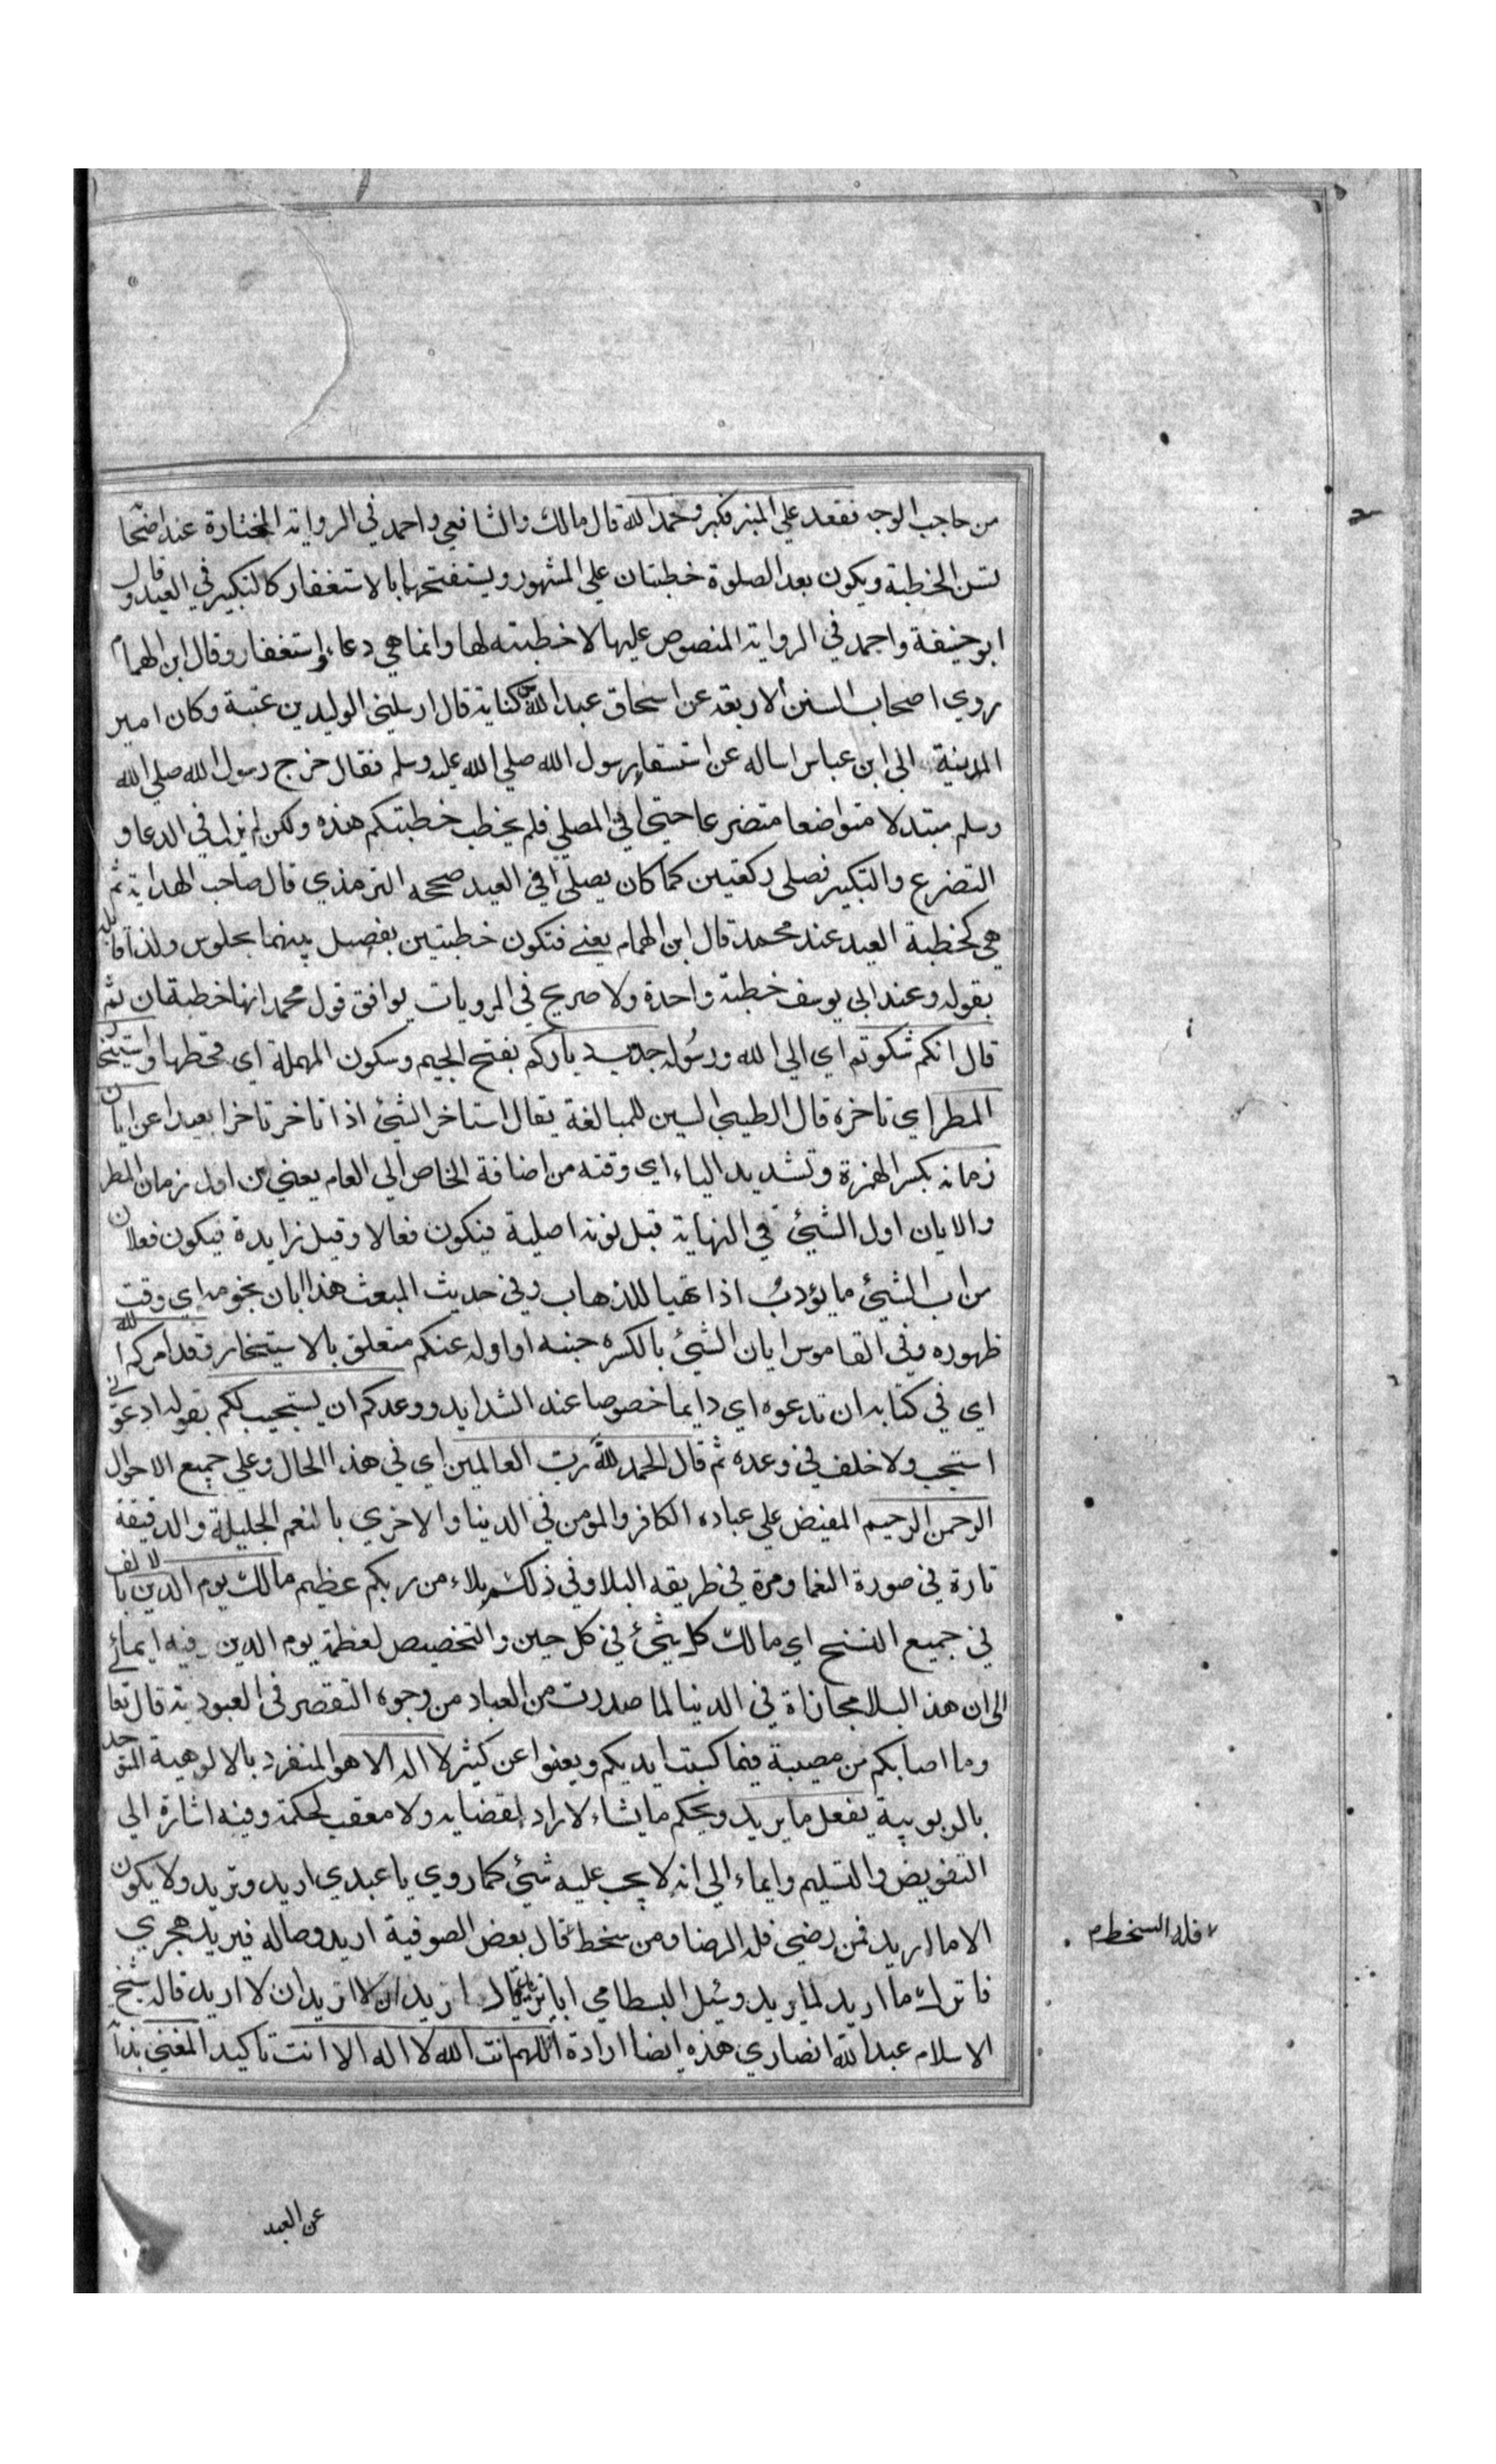 من حاجب الوجه فقعد علي المنبر فكبر وحمد الله قال مالك والشافعي واحمد في الرواية المختارة عند اصحا
تسن الخطبة ويكون بعد الصلوة خطبتان علي المشهور ويستفتحها بالاستغفار كالتكبير في العيد وقال
ابو حنيفة واحمد في الرواية المنصوص عليها لا خطبته لها وانما هي دعاء واستغفار وقال ابن الهمام
روي اصحاب السنن الاربعة عن اسحاق عبد الله بن كناية قال ارسلني الوليد بن عتبة وكان امير
المدينة الي ابن عباس اساله عن استسقاء رسول الله صلي الله عليه وسلم فقال خرج رسول الله صلي الله
وسلم مبتدلا متواضعا متضرعا حتي اتي المصلي فلم يخطب خطبتكم هذه ولكن لم يزل في الدعا و
التضرع والتكبير فصلي ركعتين كما كان يصلي في العيد صححه الترمذي قال صاحب الهداية ثم
هي كخطبة العيد عند محمد قال ابن الهمام يعني فتكون خطبتين بفصل بينهما بجلوس ولذا قابله
بقوله وعند ابي يوسف خطبة واحدة ولا صريح في المرويات يوافق قول محمد انها خطبتان ثم
قال انكم شكوتم اي الي الله ورسوله جدب دياركم بفتح الجيم وسكون المهملة اي قحطها واستيخار
المطر اي تاخره قال الطيبي السين للمبالغة يقال استاخر الشئ اذا تاخر تاخرا بعيدا عن ايان
زمانه بكسر الهمزة وتشديد الياء اي وقته من اضافة الخاص الي العام يعني من اول زمان المطر
والايان اول الشيئ في النهاية قبل نونه اصلية فيكون فعالا وقيل زايدة فيكون فعلان
من اب الشئ ما يؤدب اذا تهيا للذهاب وفي حديث المبعث هذا ابان نجومه اي وقت
ظهوره وفي القاموس ايان الشئ بالكسره حينه او اوله عنكم متعلق بالاستيخار وقد امركم الله
اي في كتابه ان تدعوه اي دايما خصوصا عند الشدايد ووعدكم ان يستجيب لكم بقوله ادعوني
استجب ولا خلف في وعده ثم قال الحمد لله رب العالمين اي في هذا الحال وعلي جميع الاحوال
الرحمن الرحيم المفيض علي عباده الكافر والمومن في الدينا والاخري بالنعم الجليلة والدقيقة
تارة في صورة النعما ومرة في طريقه البلا وفي ذلكم بلاء من ربكم عظيم مالك يوم الدين بالالف
في جميع النسخ اي مالك كل شئ في كل حين والتخصيص لعظمة يوم الدين فيه ايمائے
الي ان هذ البلا مجازاة في الدنيا لما صدرت من العباد من وجوه التقصر في العبودية قال تعا
وما اصابكم من مصيبة فبما كسبت ايديكم ويعفوا عن كثير لا اله الا هو المنفرد بالالوهية المتوحد
بالربوبية يفعل ما يريد ويحكم ما يشاء لا راد لقضايه ولا معقب لحكمة وفيه اشارة الي
التفويض والتسليم وايماء الي انه لا يجب عليه شئ كما روي يا عبدي اريد وتريد ولا يكون
الا ما اريد فمن رضي فله الرضا ومن سخط قال بعض الصوفية اريد وصاله فيريد هجري
فله السخط م
فاترك ما اريد لما يريد وسئل البسطامي ابا يزيد قال اريد ان لا اريد قاله شيخ
الاسلام عبد الله انصاري هذه ايضا ارادة اللهم انت الله لا اله الا انت تاكيد المغني بذا
عن العبد